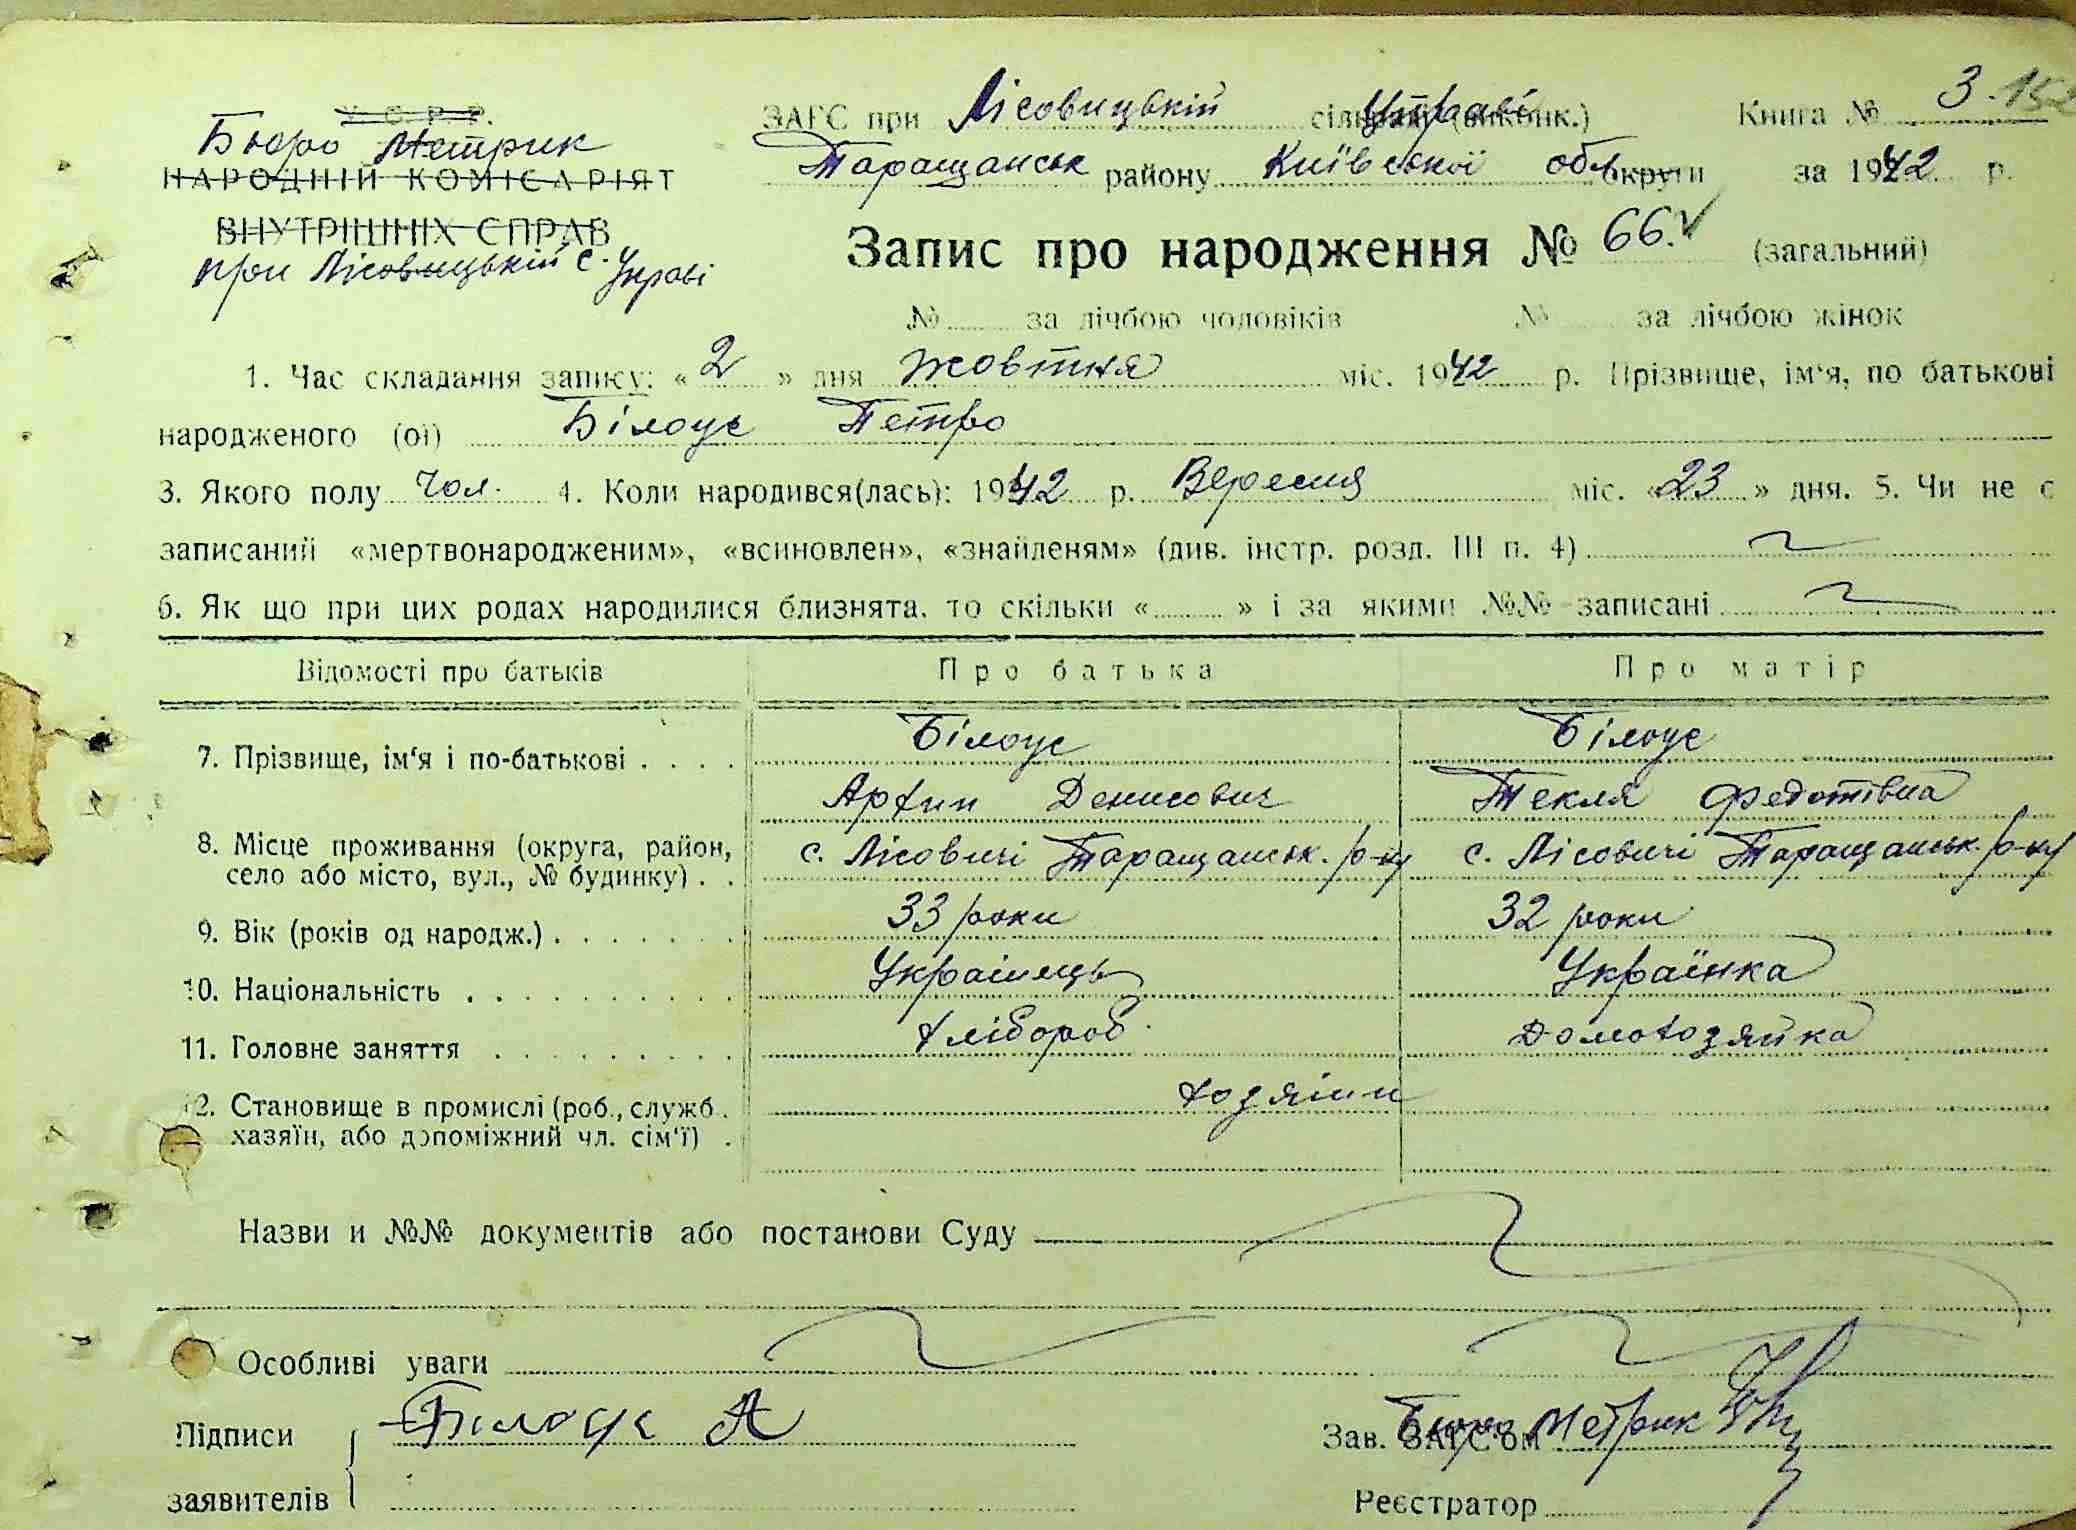 У. С. Р. Р.
Бюро Метрик
НАРОДНІЙ КОМІСАРІЯТ
ВНУТРІШНІХ СПРАВ
при Лісовицькій с. Управі
ЗАГС при Лісовицькій сільраді (виконк.) Управі Книга № 3. 152
Таращанськ району Київської обл. округи за 1942 р.
Запис про народження № 66. (загальний)
№ за лічбою чоловіків № за лічбою жінок
1. Час складання запису: « 2 » дня жовтня міс. 1942 р. Прізвище, ім‘я, по батькові
народженого (ої) Білоус Петро
3. Якого полу чол. 4. Коли народився(лась): 1942 р. Вересня міс. « 23 » дня. 5. Чи не є
записаний «мертвонародженим», «всиновлен», «знайденям» (див. інстр. розд. III п. 4)
6. Як що при цих родах народилися близнята, то скільки « » і за якими №№ записані
Відомості про батьків Про батька Про матір
7. Прізвище, ім‘я і по-батькові Білоус Білоус
Архип Денисович Текля Федотівна
8. Місце проживання (округа, район, с. Лісовичі Таращанськ. р-ну с. Лісовичі Таращанськ. р-ну
село або місто, вул., № будинку)
9. Вік (років од народж.) 33 роки 32 роки
10. Національність Українець Українка
11. Головне заняття хлібороб Домохозяйка
12. Становище в промислі (роб., служб. хозяїни
хазяїн, або допоміжний чл. сім‘ї)
Назви и №№ документів або постанови Суду
Особливі уваги
Підписи Білоус А
заявителів
Зав. ЗАГС‘ом Бюро Метрик
Реєстратор